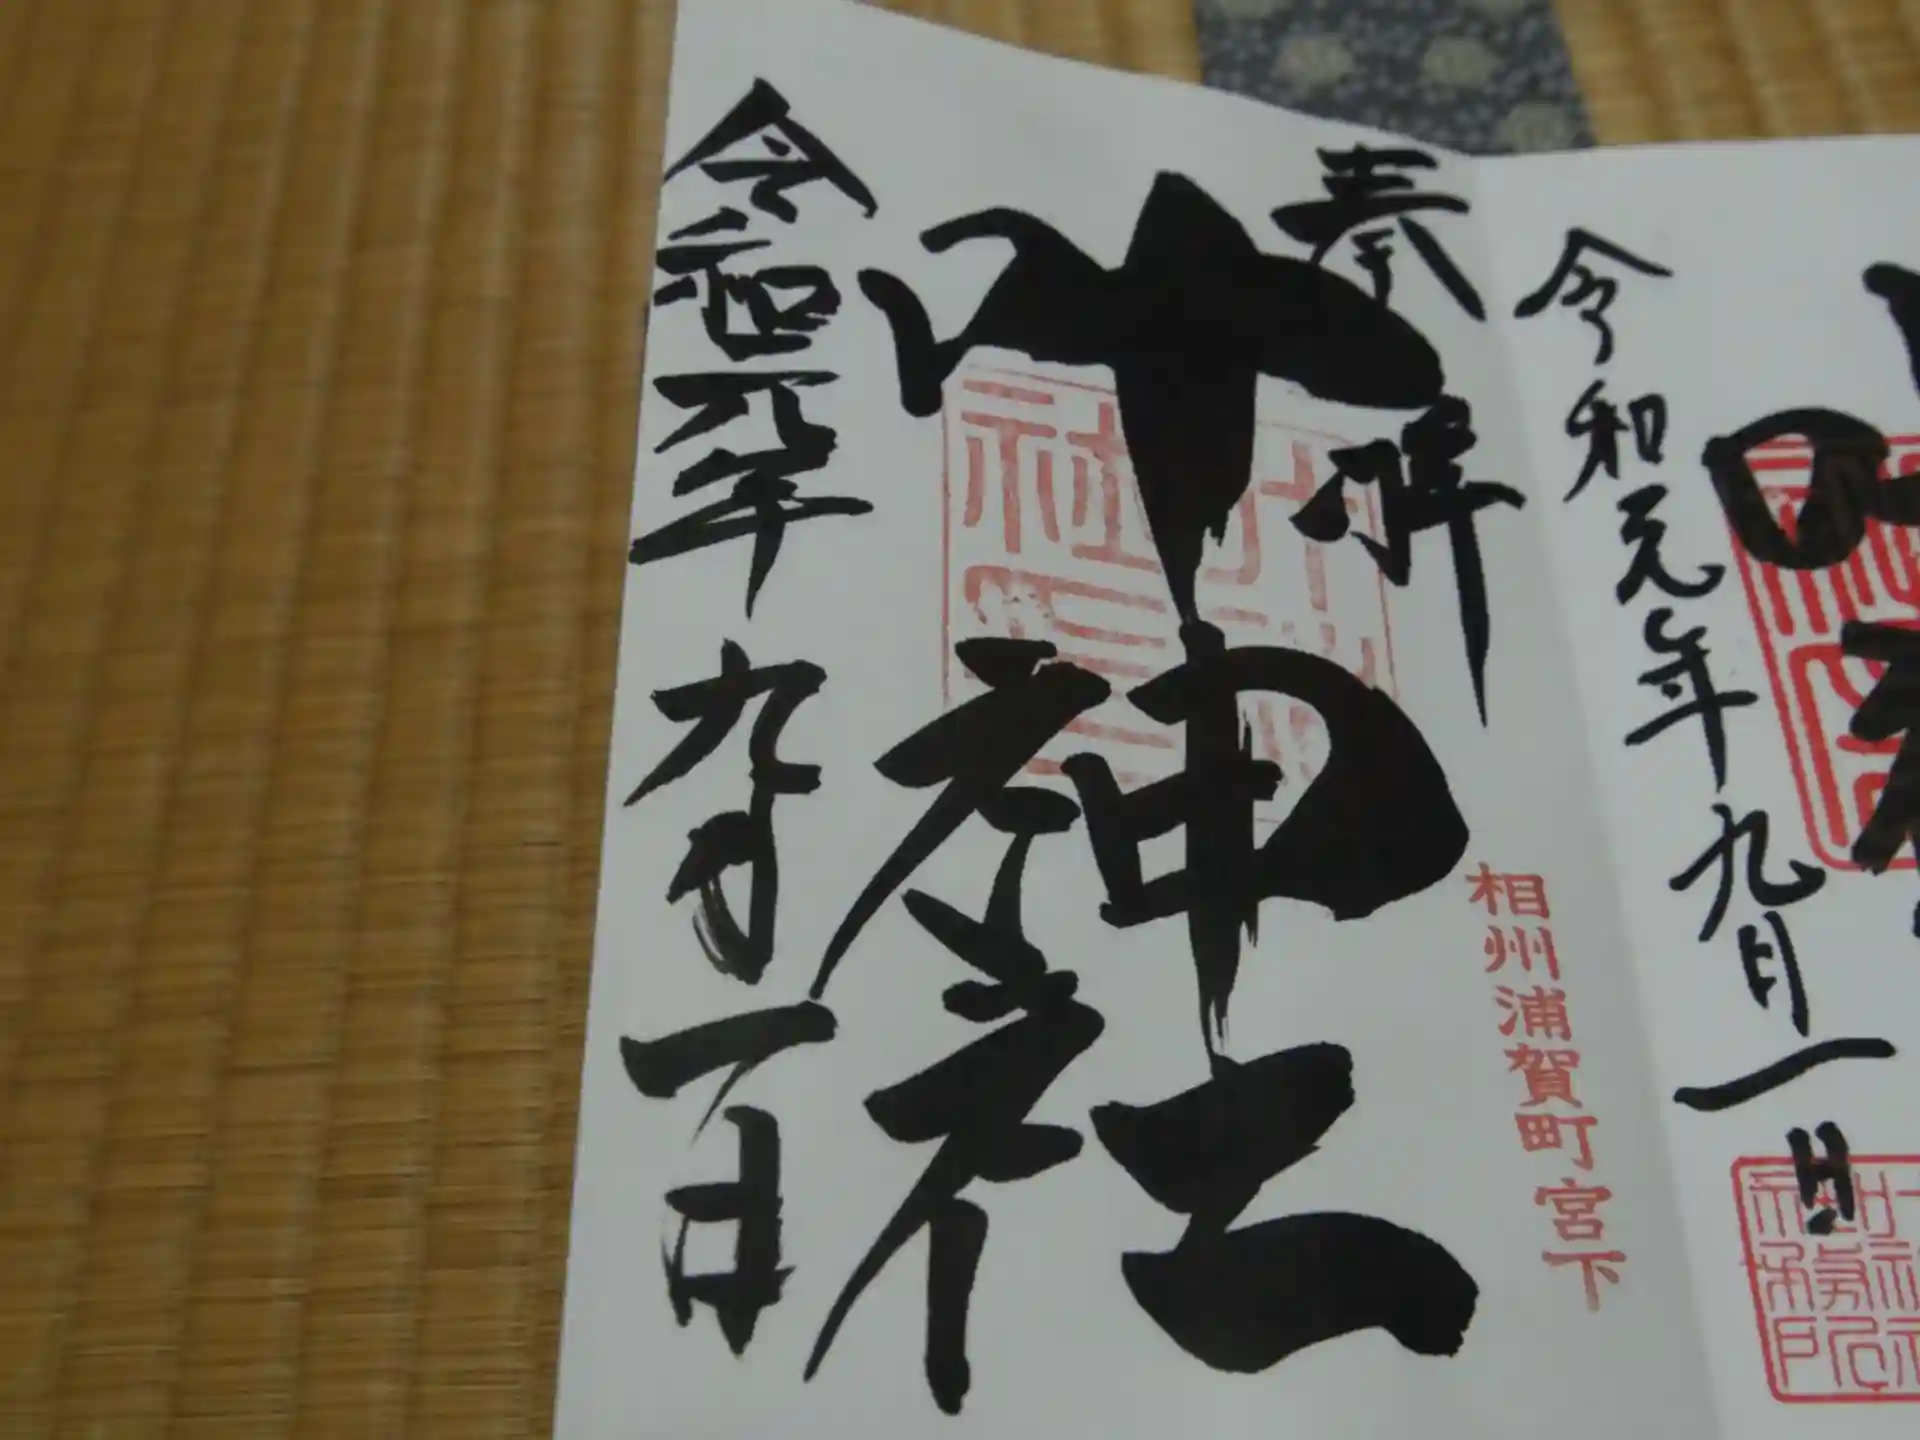 奉拝
叶神社
相州浦賀町宮下
令和元年九月一日
令和元年九月一日